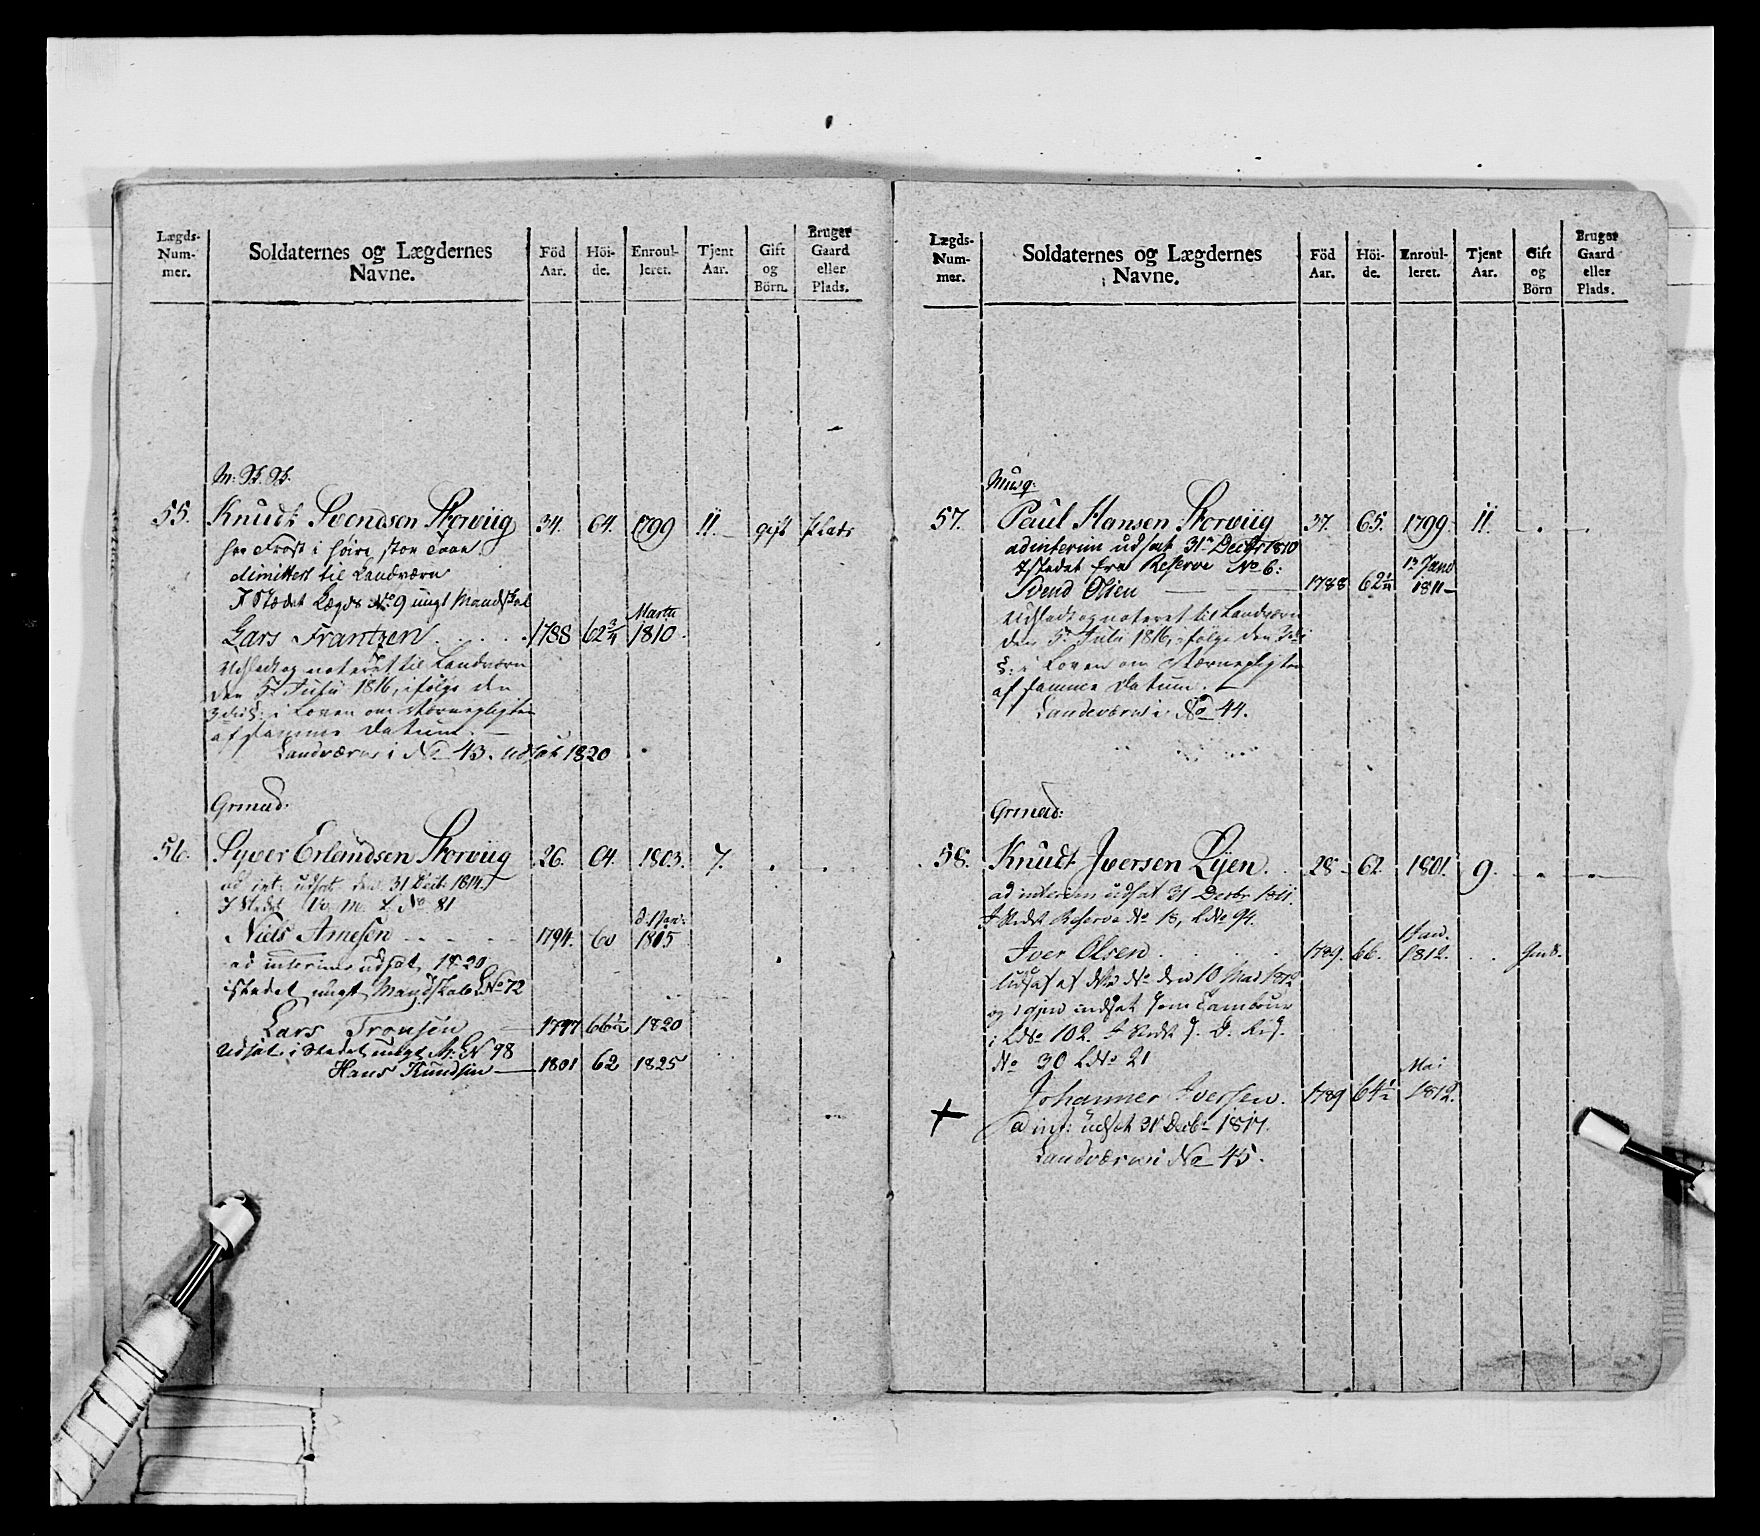 Lægds-Num-mer. Soldaternes og Lægdernes Navne. Föd Aar. Höi-de. Enroul-leret. Tjent Aar. Gift og Börn. Bruger Gaard eller Plads.
M:
55. Knudt Svendsen Storviig 34. 64. 1799 11. gift Plads
har Frost i höire stor Taae
dimittert til Landværn
I Stædet Lægds No 9 ungt Mandskab
Martii
Lars Frantzen 1788 62 3/4 1810.
Udsadt og noteret til Landværn
den 5 Julii 1816, ifølge den
§: i Loven om Værnepligten
af samme Datum.
Landværns i No 43. udsat 1820
Grenad:
56. Syver Erlandsen Storviig 26. 64. 1803. 7.
ad int: udsat den 31 Decbr 1814.
I Stedet No 81
d. 1 Jan:
Niels Arnesen 1794. 60 1815
ad interim udsat 1820
istedet ungt Mandskab LNo 72
Lars Tronsen 1797 66 1/2 1820
Udsat, i Stedet ungt M. LN 98
Hans Knudsen 1801 62 1825
Lægds-Num-mer. Soldaternes og Lægdernes Navne. Föd Aar. Höi-de. Enroul-leret. Tjent Aar. Gift og Börn Bruger Gaard eller Plads.
Musq:
57. Paul Hansen Storviig 37. 65. 1799. 11.
ad interim udsat 31 Decbr 1810
Istedet fra Reserve No 6: 1 Janu
Svend Olsen 1788 62 1/4 1811
Udsadt og noteret til Landværn
den 5 Julii 1816, ifølge den
§: i Loven om Værnepligten
af samme Datum.
Landeværns i No 44.
Grenad:
58. Knudt Iversen Lijen. 28 62. 1801. 9.
ad interim udsat 31 Decbr 1811.
I Stedet Reserve No 18, LNo 94.
1 Jan.
Iver Olsen 1789. 66. 1812.
Udsat af No den 10 Mai 1812
og igjen indsat som Tambour
i LNo 102. I Stedet
No 30 LNo 21
Mai
Johannes Iversen. 1789 64 1/2 1812.
ad int: udsat 31 Decbr 1817.
Landværns i No 45.